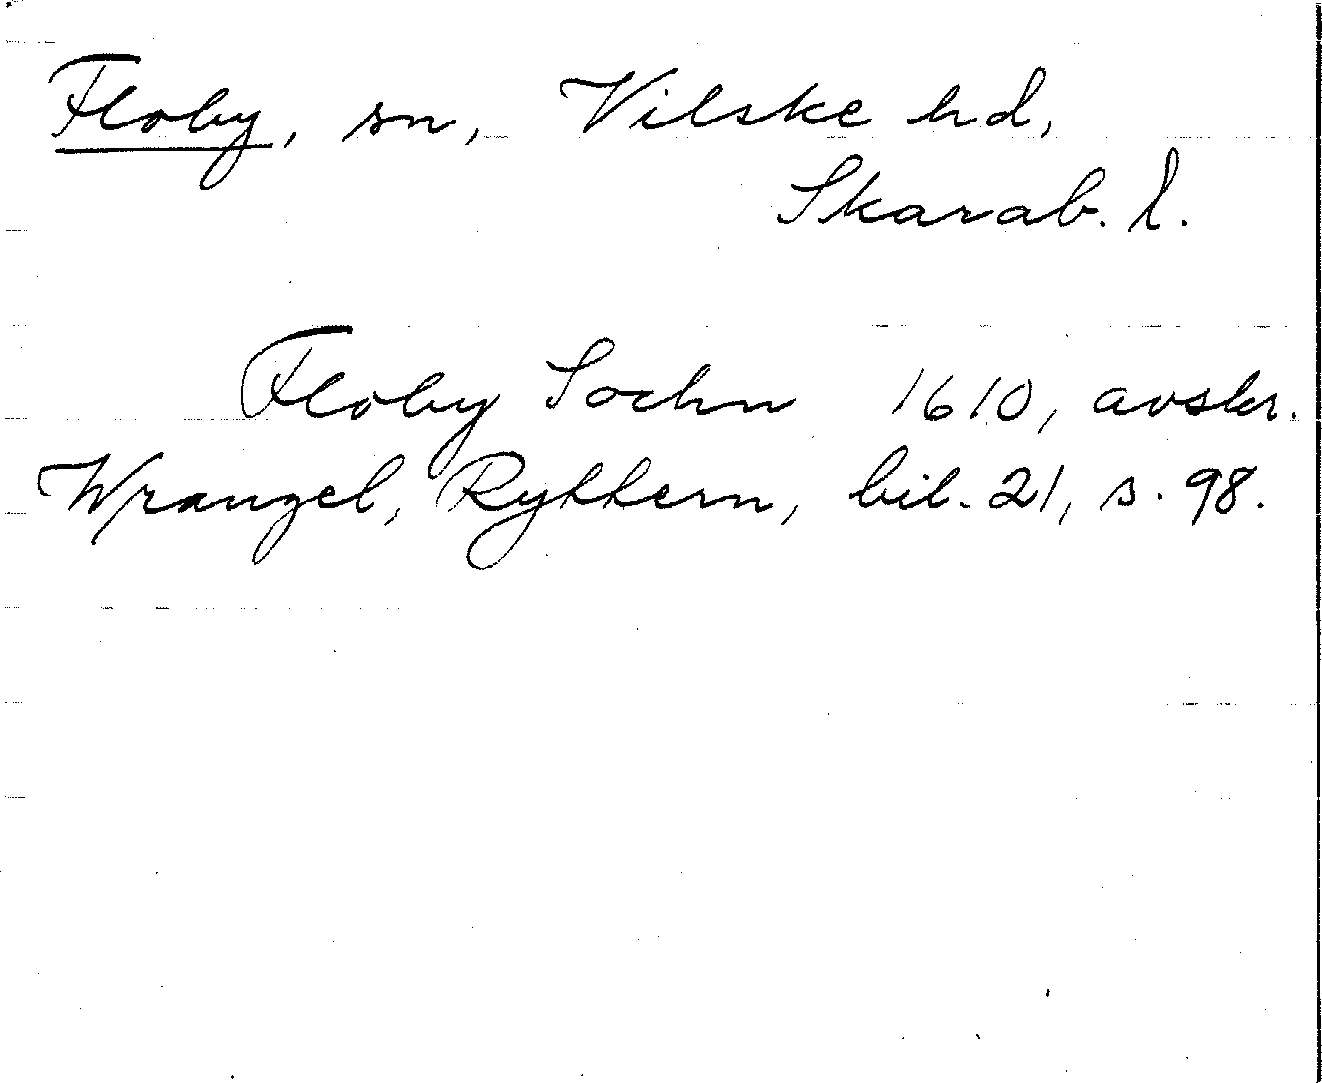 Floby, sn, Vilske hd,
Skarab. l.
Floby Sochn 1610, avskr.
Wrangel, Rytthern, bil. 21, s. 98.